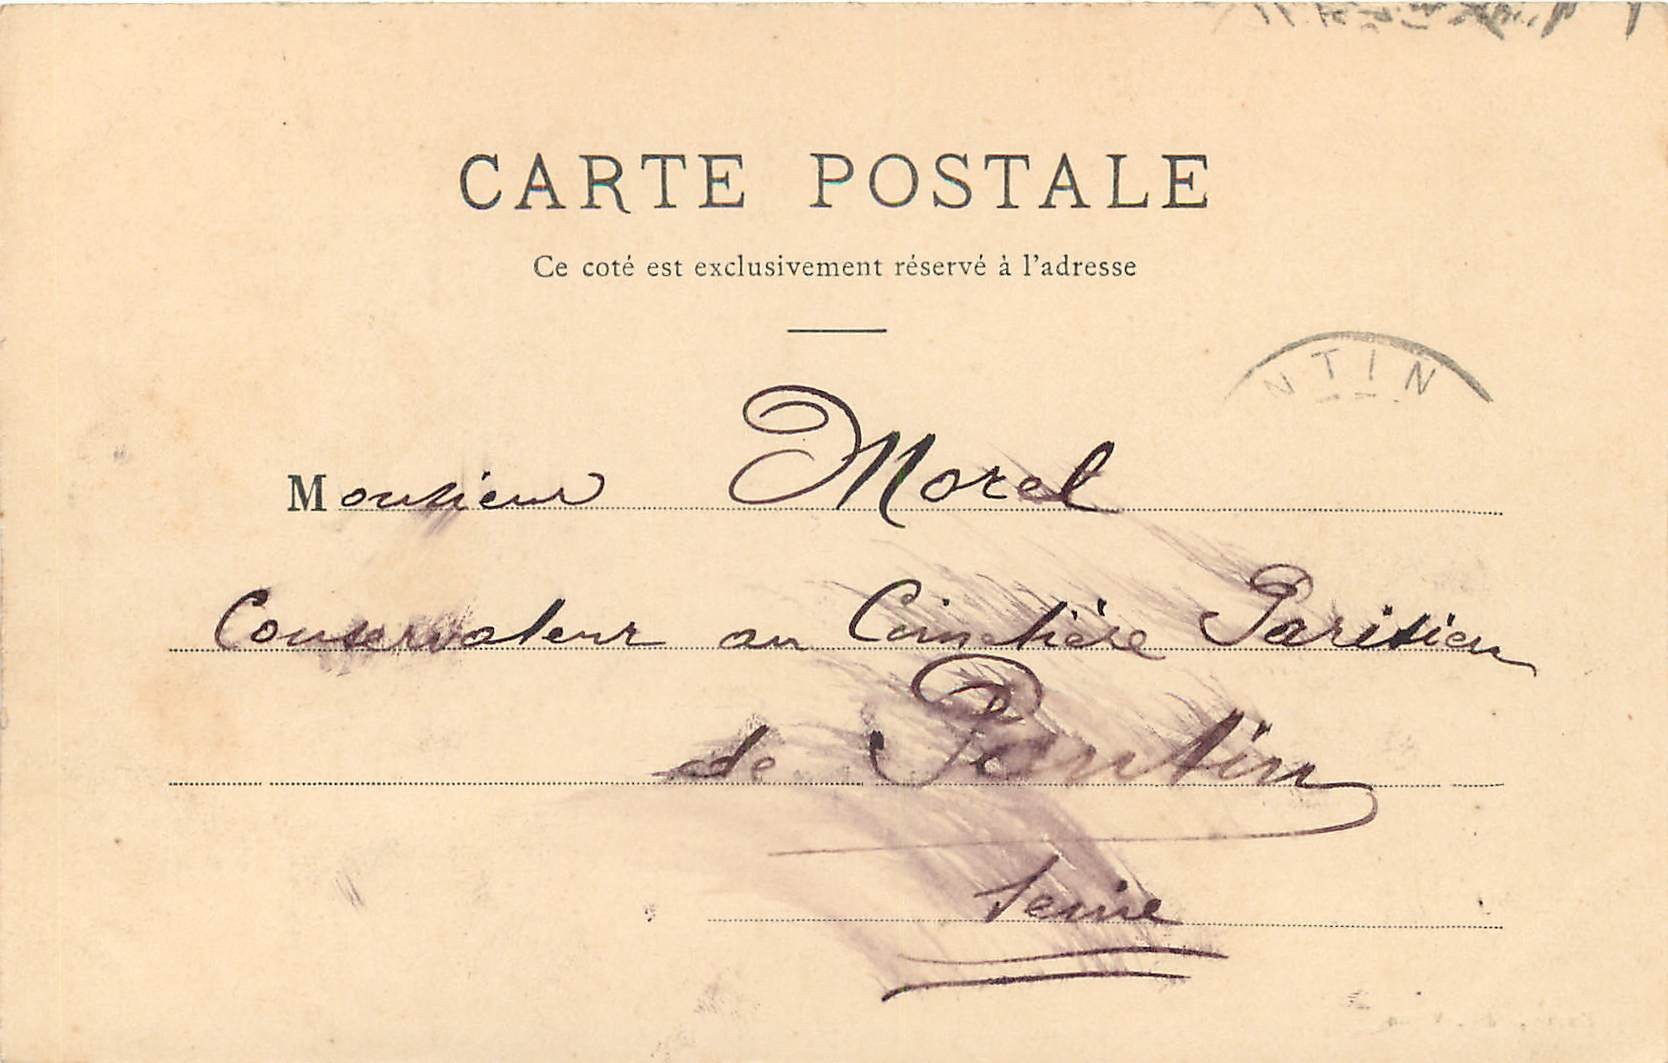 CARTE POSTALE
Ce coté est exclusivement réservé à l'adresse
NTIN
Monsieur Morel
Conservateur au Cimetière Parisien
de Pantin
Seine